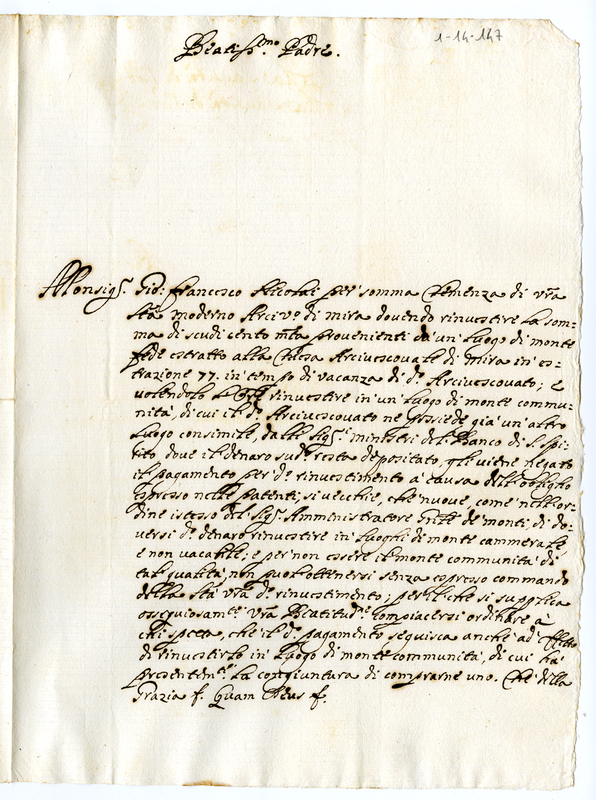 1-14-147
Beatiss.mo Padre.
Monsig.r Gio: Francesco Nicolai per somma Clemenza di v̄ra
S.tà moderno Arciv.o di mira dovendo rinvestire la som-
ma di scudi cento m.ta provenienti da un luogo di monte
fede estratto alla Chiesa Arcivescovale di Mira in es-
trazione 77. in tempo di vacanza di d.o Arcivescovato; e
volendolo rinvestire in un luogo di monte commu-
nità, di cui il d.o Arcivescovato ne possiede già un'altro
luogo consimile, dalli Sig.ri ministri del Banco di S. Spi-
rito dove il denaro sud.o resta depositato, gli viene negato
il pagamento per d.o rinvestimento à causa dell'obbligho
espresso nelle patenti, si vecchie, che nuove, come nell'or-
dine istesso del Sig.r Amministratore Gn̄le de monti di do-
versi d.o denaro rinvestire in luoghi di monte cammerale
e non vacabile; e per non essere il monte communità di
tal qualità, non puol ottenersi senza espresso commando
della S.tà v̄ra d.o rinvestimento; per il che si supplica
ossequiosam.te v̄ra Beatitud.ne compiacersi ordinare à
chi spetta, che il d.o pagamento seguisca anche ad effetto
di rinvestirlo in luogo di monte communità, di cui hà
presentem.te la congiuntura di comprarne uno. Che della
Grazia f. Quam Deus f.